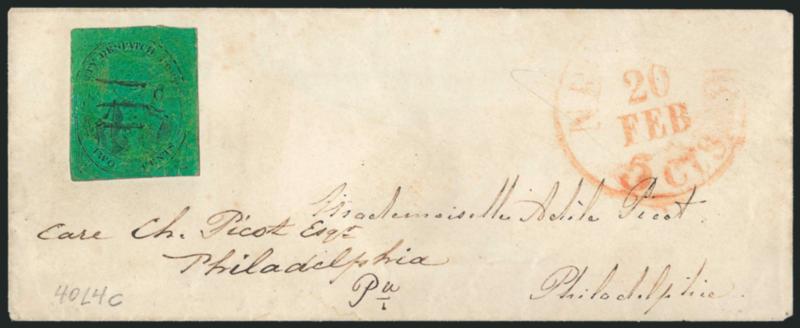 CITY DESPATCH POST
TWO CENTS
NE
20
FEB
5 CTS
Mademoiselle Adèle Picot.
Care Ch. Picot Esqr
Philadelphia
Pa
Philadelphie
40L4c